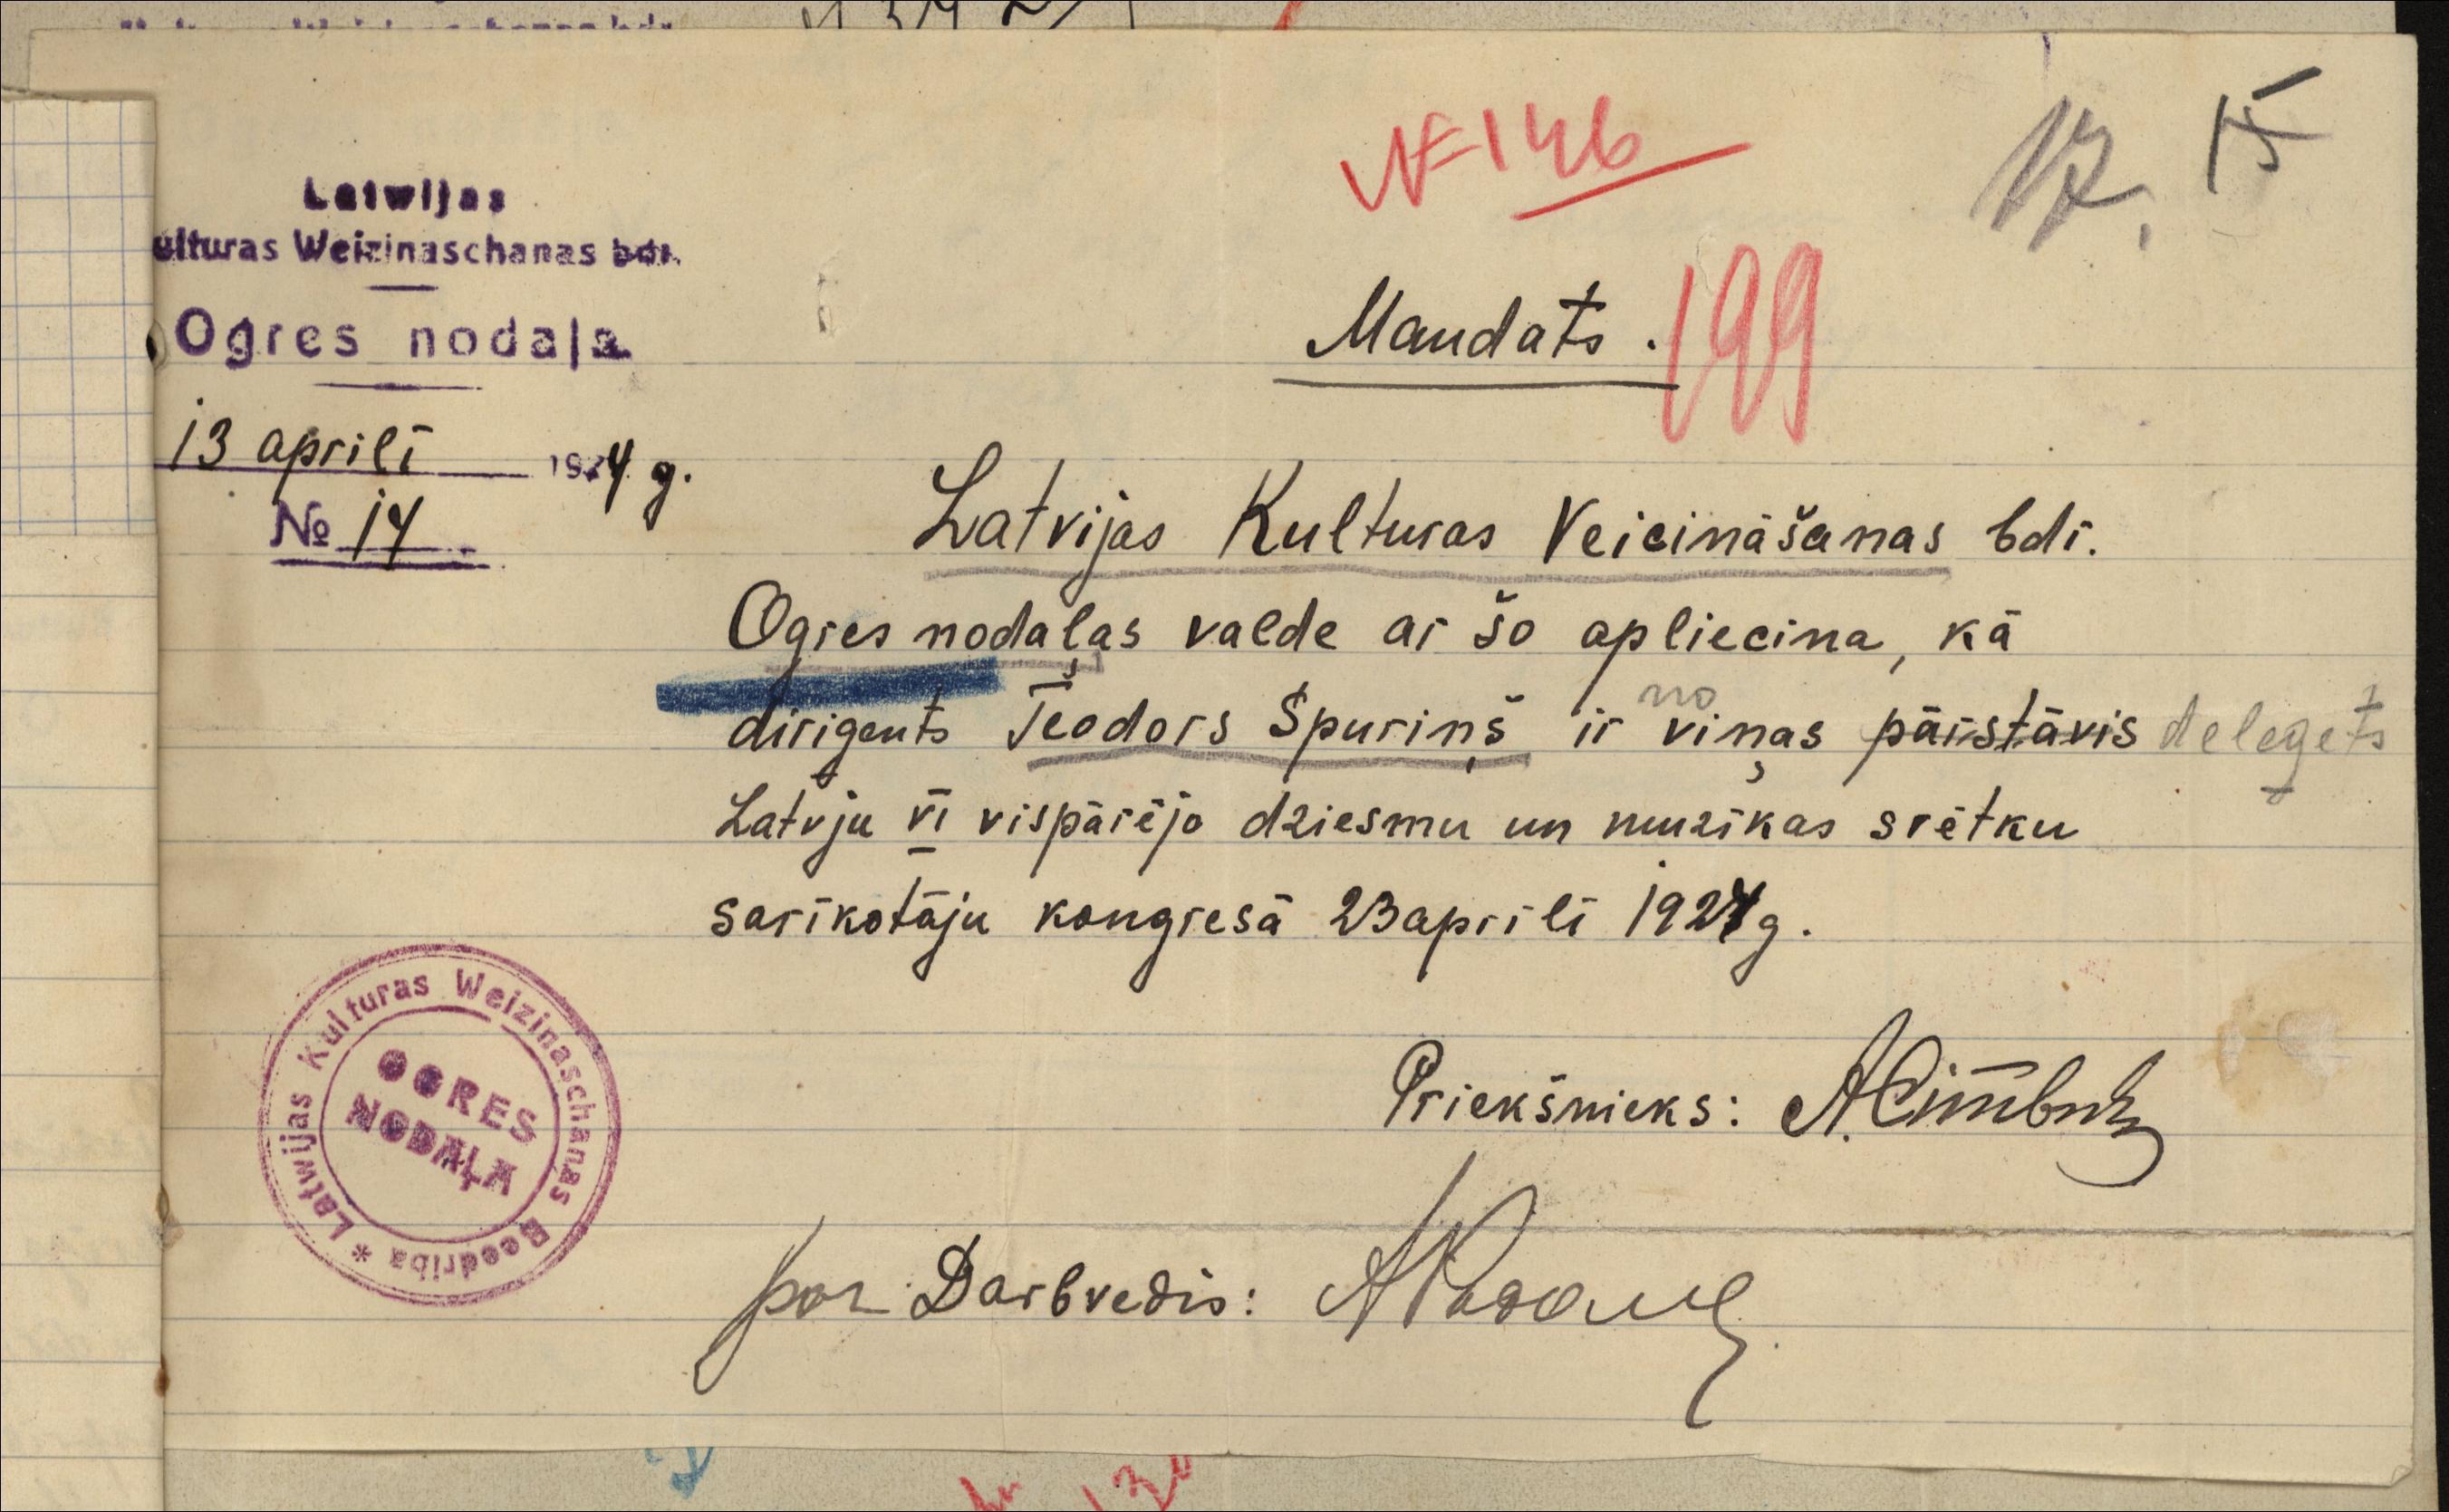 Latwijas
ulturas Weizinaschanas bdr.
Ogres nodaļa
13 aprilī 1924 g.
№ 14
№ 146
15
199
Mandats.
Latvijas Kulturas Veicināšanas bdr.
Ogres nodaļas valde ar šo apliecina, kā
dirigents Teodors Spuriņš ir no viņas pārstāvis deleģets
Latvju VI vispārējo dziesmu un muzīkas svētku
sarīkotāju kongresā 23 aprilī 1924 g.
Priekšnieks: A.
par Darbvedis:
Latwijas Kulturas Weizinaschanas Beedriba *
OGRES
NODAĻA